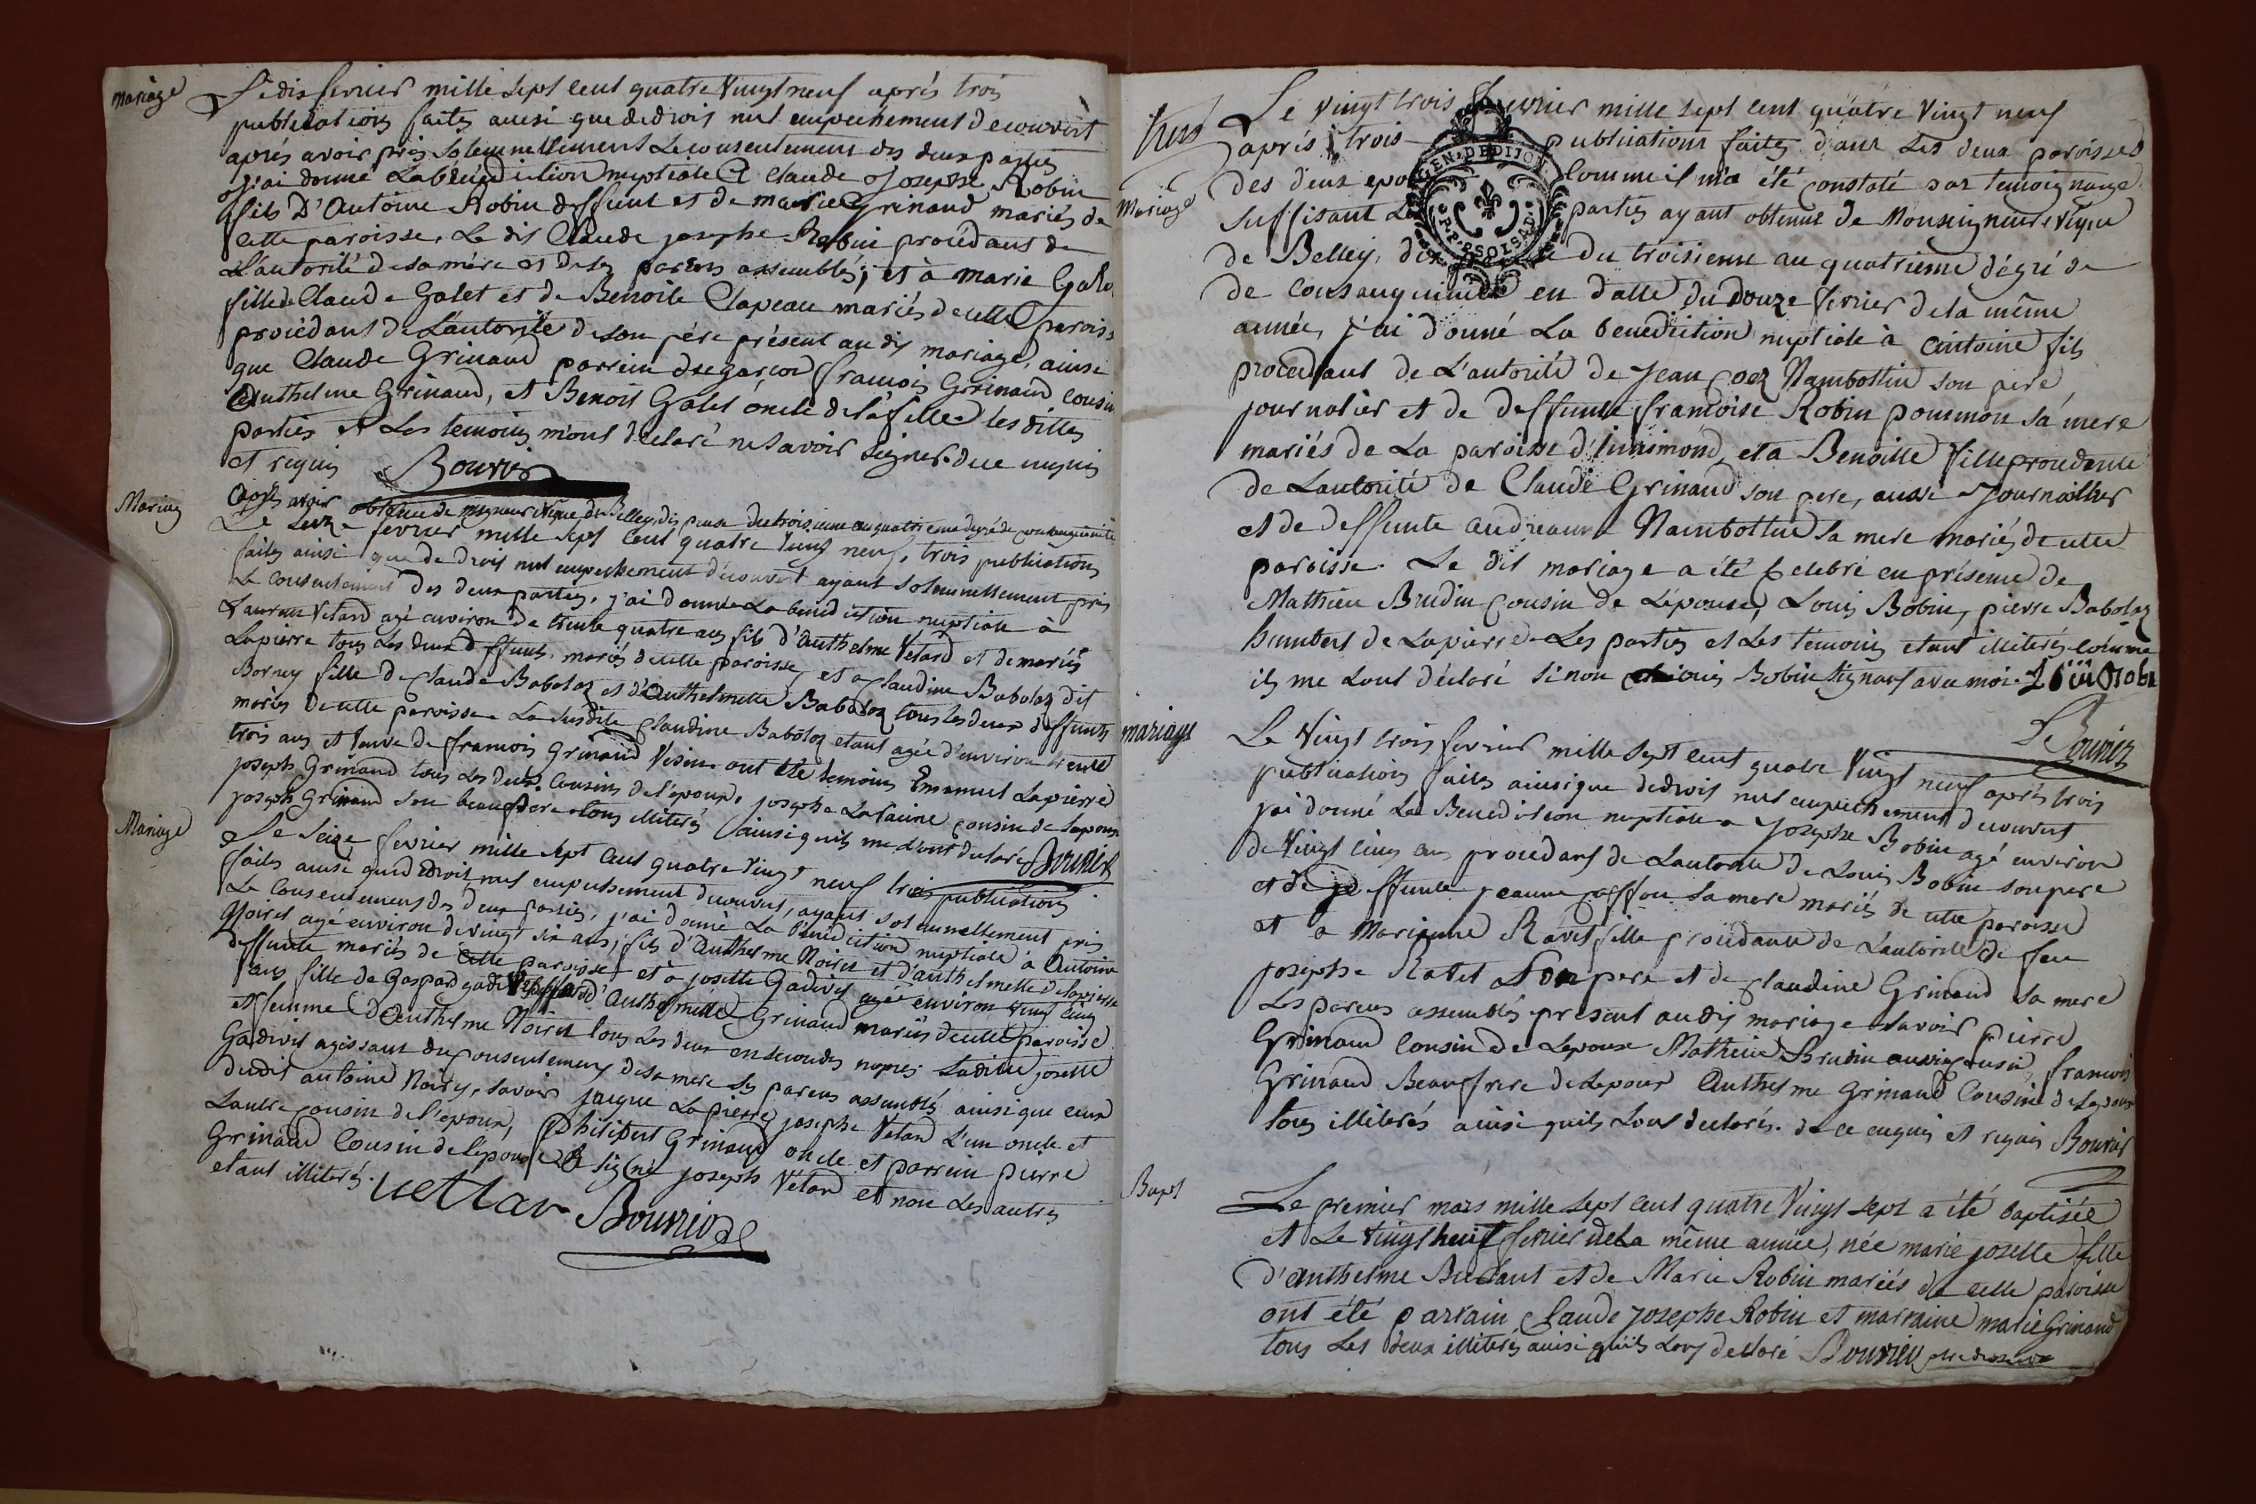 mariage
Le dix fevrier mille sept cent quatre vingt neuf après trois
publications faites ainsi que de droit nul empechement decouvert
après avoir pris solemnellement le consentement des deux parties
j'ai donné la bénédiction nuptiale à claude josephe Robin
fils D'Antoine Robin deffunt et de marie Grinand mariés de
cette paroisse, Le dit Claude josephe Robin procédant de
L'autorité de sa mére et de ses parens assemblés; et à marie
fille de Claude Galet et de Benoite Clapeau mariés de cette paroisse
procédant de L'autorité de son pére présent au dit mariage, ainsi
que Claude Grinand parrein du garçon francois Grinand cousin
Anthelme Grinand, et Benoit Galet oncle de la fille les dittes
parties et Les temoins m'ont declaré ne savoir signer de ce enquis
et requis Bouvier
Mariage
après avoir obtenue de du Belley dispense du troisieme au quatrieme degré de consanguinité
Le seize fevrier mille sept cent quatre vingt neuf, trois publications
faites ainsi que de droit nul empechement découvert ayant solemnellement pris
Le consentement des deux parties, j'ai donné La bénédiction nuptiale à
Laurent Vetard agé environ de trente quatre ans fils d'Anthelme Vetard et de mariés
Lapierre tous Les deux deffunts mariés de cette paroisse, et a claudine Babolaz dit
Borney fille de claude Babolaz et d'Anthelmette Babolaz tous les deux deffunts
mariés de cette paroisse La susdite Claudine Babolaz etant agée d'environ trente
trois ans et veuve de francois Grinand Voisin ont été temoins Emanuel Lapierre
joseph Grinand tous les deux cousins de l'epoux, josephe cousin de Lepouse
joseph Grinand son beaufrere tous illiterés ainsi quils me l'ont declaré Bouvier
Mariage
Le Seize fevrier mille sept cent quatre vingt neuf trois publications
faites ainsi que de droit nul empechement decouvert, ayant solemnellement pris
Le consentement des deux parties, j'ai donné La bénédiction nuptiale à Antoine
Noiret agé environ de vingt six ans, fils d'Anthelme Noiret et d'anthelmette delapierre
deffunte mariés de cette paroisse et à josette Gadivet agée environ vingt cinq
ans fille de Gaspard d'Anthelmette Grinand mariés de cette paroisse
et femme d'Anthelme Noiret tous Les deux en secondes nopces. Ladite josette
Gadivet agissant du consentement de sa mere ses parens assemblés ainsi que ceux
dudit antoine Noiret, savoir jacque Lapierre josephe Vetard L'un oncle et
Lautre cousin de l'epoux, Philibert Grinand oncle et parrein pierre
Grinand Cousin de l'epouse signé joseph Vetard et non Les autres
etant illiterés. Bouvier
Mariage
Le vingt trois fevrier mille sept cent quatre vingt neuf
après trois publications faites dans Les deux paroisses
des deux comme il m'a été constaté par temoignage
suffisant parties ayant obtenue de Monseigneur
de Belley, du troisieme au quatrième dégré de
de consanguinité en datte du douze fevrier de la même
année, j'ai donné La benediction nuptiale à antoine fils
procedant de L'autorité de Jean Nambottin son pere
journalier et de deffunte francoise Robin pommon sa mere
mariés de La paroisse d'innimond, et a Benoitte fille procedente
de Lautorité de Claude Grinand son pere, aussi journallier
et de deffunte Nambottin sa mere mariés de cette
paroisse. Le dit mariage a été celebré en présence de
Mathieu Brudin cousin de Lépouse, Louis Bobin, pierre Babolaz
humbert de Lapierre Les parties et Les témoins etant illiterés comme
ils me Lont déclaré sinon Louis Bobin signant avec moi
Bouvier
mariage
Le vingt trois fevrier mille sept cent quatre vingt neuf après trois
publications faites ainsi que de droit nul empechement decouvert
j'ai donné La Benediction nuptiale a josephe Bobin agé environ
de vingt cinq ans procedant de Lautorité de Louis Bobin son pere
et de deffunte jeanne sa mere mariés de cette paroisse
et a Marianne Ravet fille procedante de L'autorité de feu
josephe Ravet son pere et de claudine Grinand sa mere
Les parens assemblés present au dit mariage savoir pierre
Grinand cousin de Lepoux Mathieu Brudin aussi cousin, francois
Grinand Beaufrere de Lepoux Anthelme Grinand Cousin de Lepoux
tous illiterés ainsi quils Lont declarés. de ce enquis et requis Bouvier
Bapt
Le premier mars mille sept cent quatre vingt sept a été baptisée
et Le vingt huit fevrier de La même année, née marie josette fille
d'Anthelme et de Marie Robin mariés de cette paroisse
ont été parrain claude josephe Robin et marraine marie Grinand
tous Les deux illiterés ainsi quils Lont declaré Bouvier
GEN. DE DIJON